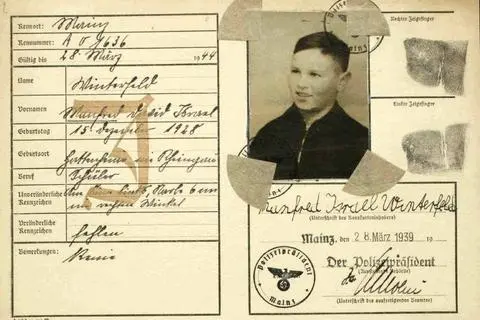 Kennort: Mainz
Kennummer: A 0 1636
Gültig bis 28. März 1944
Name Winterfeld
Vornamen Manfred David Israel
Geburtstag 15. Dezember 1928
Geburtsort Hattenheim im Rheingau
Beruf Schüler
Unveränderliche Kennzeichen
Veränderliche Kennzeichen fehlen
Bemerkungen: Keine
J
Rechter Zeigefinger
Linker Zeigefinger
Manfred Israel Winterfeld
(Unterschrift des Kennkarteninhabers)
Mainz, den 28. März 1939 19
Der Polizeipräsident
(Ausstellende Behörde)
(Unterschrift des ausfertigenden Beamten)
Polizeipräsident
Mainz
Mainz